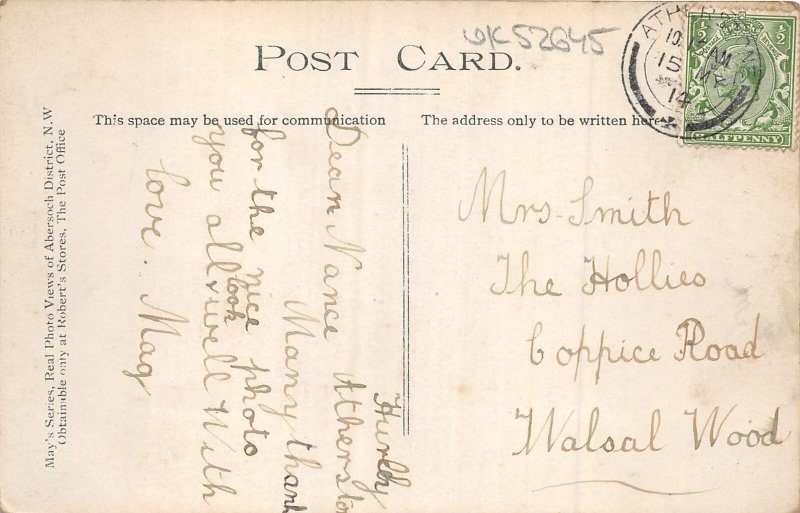 UK52645
POST CARD.
This space may be used for communication
The address only to be written here
ATHERSTONE
10.15AM
15 MY
14
HALFPENNY
May's Series, Real Photo Views of Abersoch District, N.W
Obtainable only at Robert's Stores, The Post Office
Hurley
Atherston
Dear Nance
Many thank
for the nice photo
you all look
well With
love. Mag
Mrs. Smith
The Hollies
Coppice Road
Walsal Wood